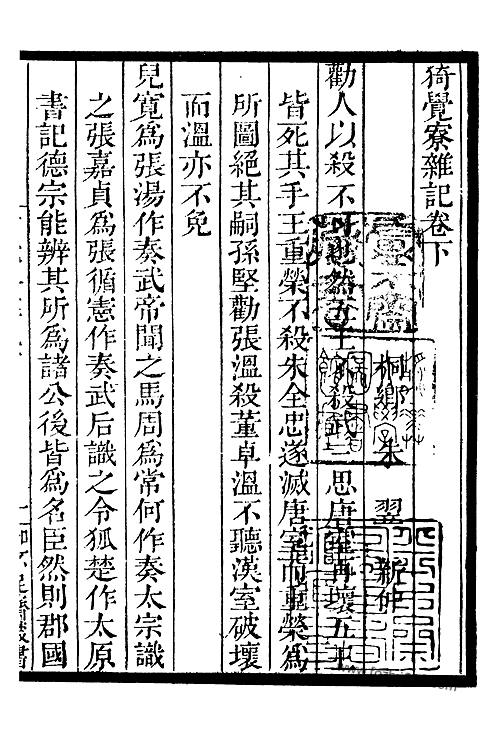 猗覺寮雜記卷下
桐鄉 朱 翌 新仲
勸人以殺不可也然五王不殺武三思唐室再壞五王
皆死其手王重榮不殺朱全忠遂滅唐室而重榮爲
所圖絕其嗣孫堅勸張溫殺董卓溫不聽漢室破壞
而溫亦不免
兒寬爲張湯作奏武帝聞之馬周爲常何作奏太宗識
之張嘉貞爲張循憲作奏武后識之令狐楚作太原
書記德宗能辨其所爲諸公後皆爲名臣然則郡國